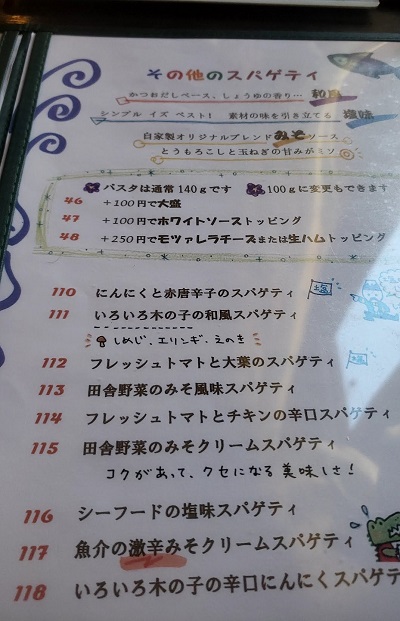 その他のスパゲティ
かつおだしベース、しょうゆの香り… 和風
シンプル イズ ベスト! 素材の味を引き立てる 塩味
自家製オリジナルブレンドみそソース
とうもろこしと玉ねぎの甘みがミソ
パスタは通常140gです 100gに変更もできます
46 +100円で大盛
47 +100円でホワイトソーストッピング
48 +250円でモツァレラチーズまたは生ハムトッピング
110 にんにくと赤唐辛子のスパゲティ 塩
111 いろいろ木の子の和風スパゲティ
しめじ、エリンギ、えのき
112 フレッシュトマトと大葉のスパゲティ
113 田舎野菜のみそ風味スパゲティ
114 フレッシュトマトとチキンの辛口スパゲティ
115 田舎野菜のみそクリームスパゲティ
コクがあって、クセになる美味しさ!
116 シーフードの塩味スパゲティ
117 魚介の激辛みそクリームスパゲティ
118 いろいろ木の子の辛口にんにくスパゲテ